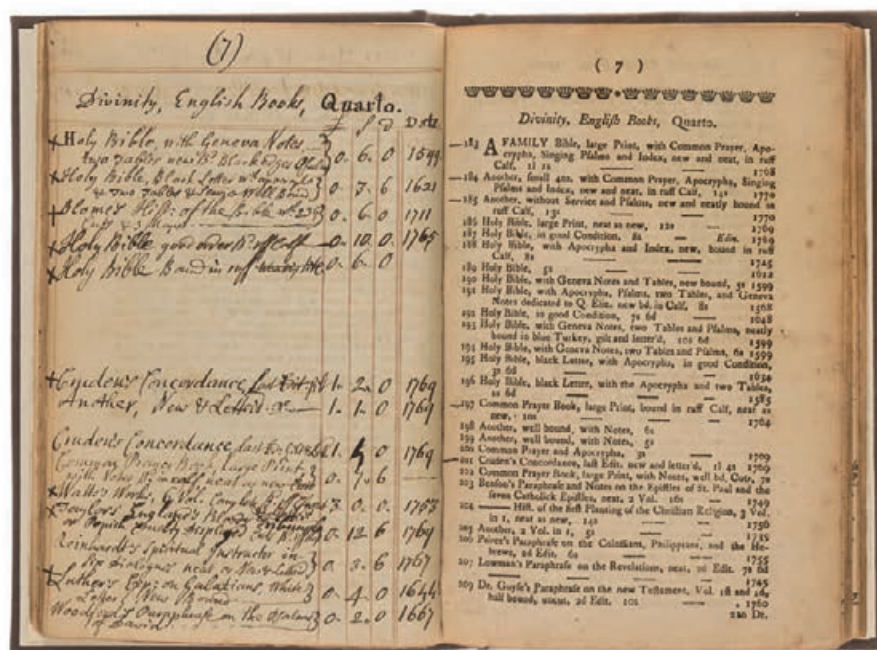 (7)
Divinity, English Books, Quarto.
£ S D Date
Holy Bible, with Geneva Notes,
two Tables new Bd. Black Edges 0. 6. 0 1599
Holy Bible, Black Letter
& two Tables Well Bound 0. 7. 6 1621
Blome's Hist: of the Bible 0. 6. 0 1711
Holy Bible good order Bd. ruff Calf 0. 10. 0. 1765
Holy Bible Bound in ruff 0. 6. 0
Cruden's Concordance, last Edit 1. 2. 0 1769
Another, New & Letter'd 1. 1. 0 1769
Cruden's Concordance, last 1. 0 1769
Common Prayer Book, Large Print,
with Notes Bd. in calf, neat as new 0. 7. 6
Watts's Works, 6 Vol. 3. 0. 0. 1753
Taylor's England's Bloody
or Popish Cruelty displayed 0. 12. 6 1769
Reinhardt's Spiritual Instructor in
dialogues neat 0. 3. 6 1767
Luther's Exp: on Galatians, White
Letter New Bound 0. 4. 0 1644
Woodford's Paraphrase on the Psalms
of David 0. 2. 0 1667
( 7 )
Divinity, English Books, Quarto.
183 A FAMILY Bible, large Print, with Common Prayer, Apo-
crypha, Singing Psalms and Index, new and neat, in ruff
Calf, 1l 1s 1768
184 Another, small 4to. with Common Prayer, Apocrypha, Singing
Psalms and Index, new and neat, in ruff Calf, 14s 1770
185 Another, without Service and Psalms, new and neatly bound in
ruff Calf, 13s 1770
186 Holy Bible, large Print, neat as new, 12s 1769
187 Holy Bible, in good Condition, 8s Edin. 1769
188 Holy Bible, with Apocrypha and Index, new, bound in ruff
Calf, 8s 1725
189 Holy Bible, 5s 1612
190 Holy Bible, with Geneva Notes and Tables, new bound, 5s 1599
191 Holy Bible, with Apocrypha, Psalms, two Tables, and Geneva
Notes dedicated to Q. Eliz. new bd. in Calf, 8s 1568
192 Holy Bible, in good Condition, 7s 6d 1648
193 Holy Bible, with Geneva Notes, two Tables and Psalms, neatly
bound in blue Turkey, gilt and letter'd, 10s 6d 1599
194 Holy Bible, with Geneva Notes, two Tables and Psalms, 6s 1599
195 Holy Bible, black Letter, with Apocrypha, in good Condition,
3s 6d 1634
196 Holy Bible, black Letter, with the Apocrypha and two Tables,
2s 6d 1585
197 Common Prayer Book, large Print, bound in ruff Calf, neat as
new, 10s 1764
198 Another, well bound, with Notes, 6s
199 Another, well bound, with Notes, 5s
200 Common Prayer and Apocrypha, 3s 1709
201 Cruden's Concordance, last Edit. new and letter'd, 1l 4s 1769
202 Common Prayer Book, large Print, with Notes, well bd. Cuts, 7s
203 Benson's Paraphrase and Notes on the Epistles of St. Paul and the
seven Catholick Epistles, neat, 2 Vol. 16s 1749
204 Hist. of the first Planting of the Christian Religion, 3 Vol.
in 1, neat as new, 14s 1756
205 Another, 2 Vol. in 1, 5s 1735
206 Peirce's Paraphrase on the Colossians, Philippians, and the He-
brews, 2d Edit. 6s 1755
207 Lowman's Paraphrase on the Revelations, neat, 2d Edit. 7s 6d
1745
209 Dr. Guyse's Paraphrase on the new Testament, Vol. 1st and 2d,
half bound, uncut, 2d Edit. 10s 1760
210 Dr.